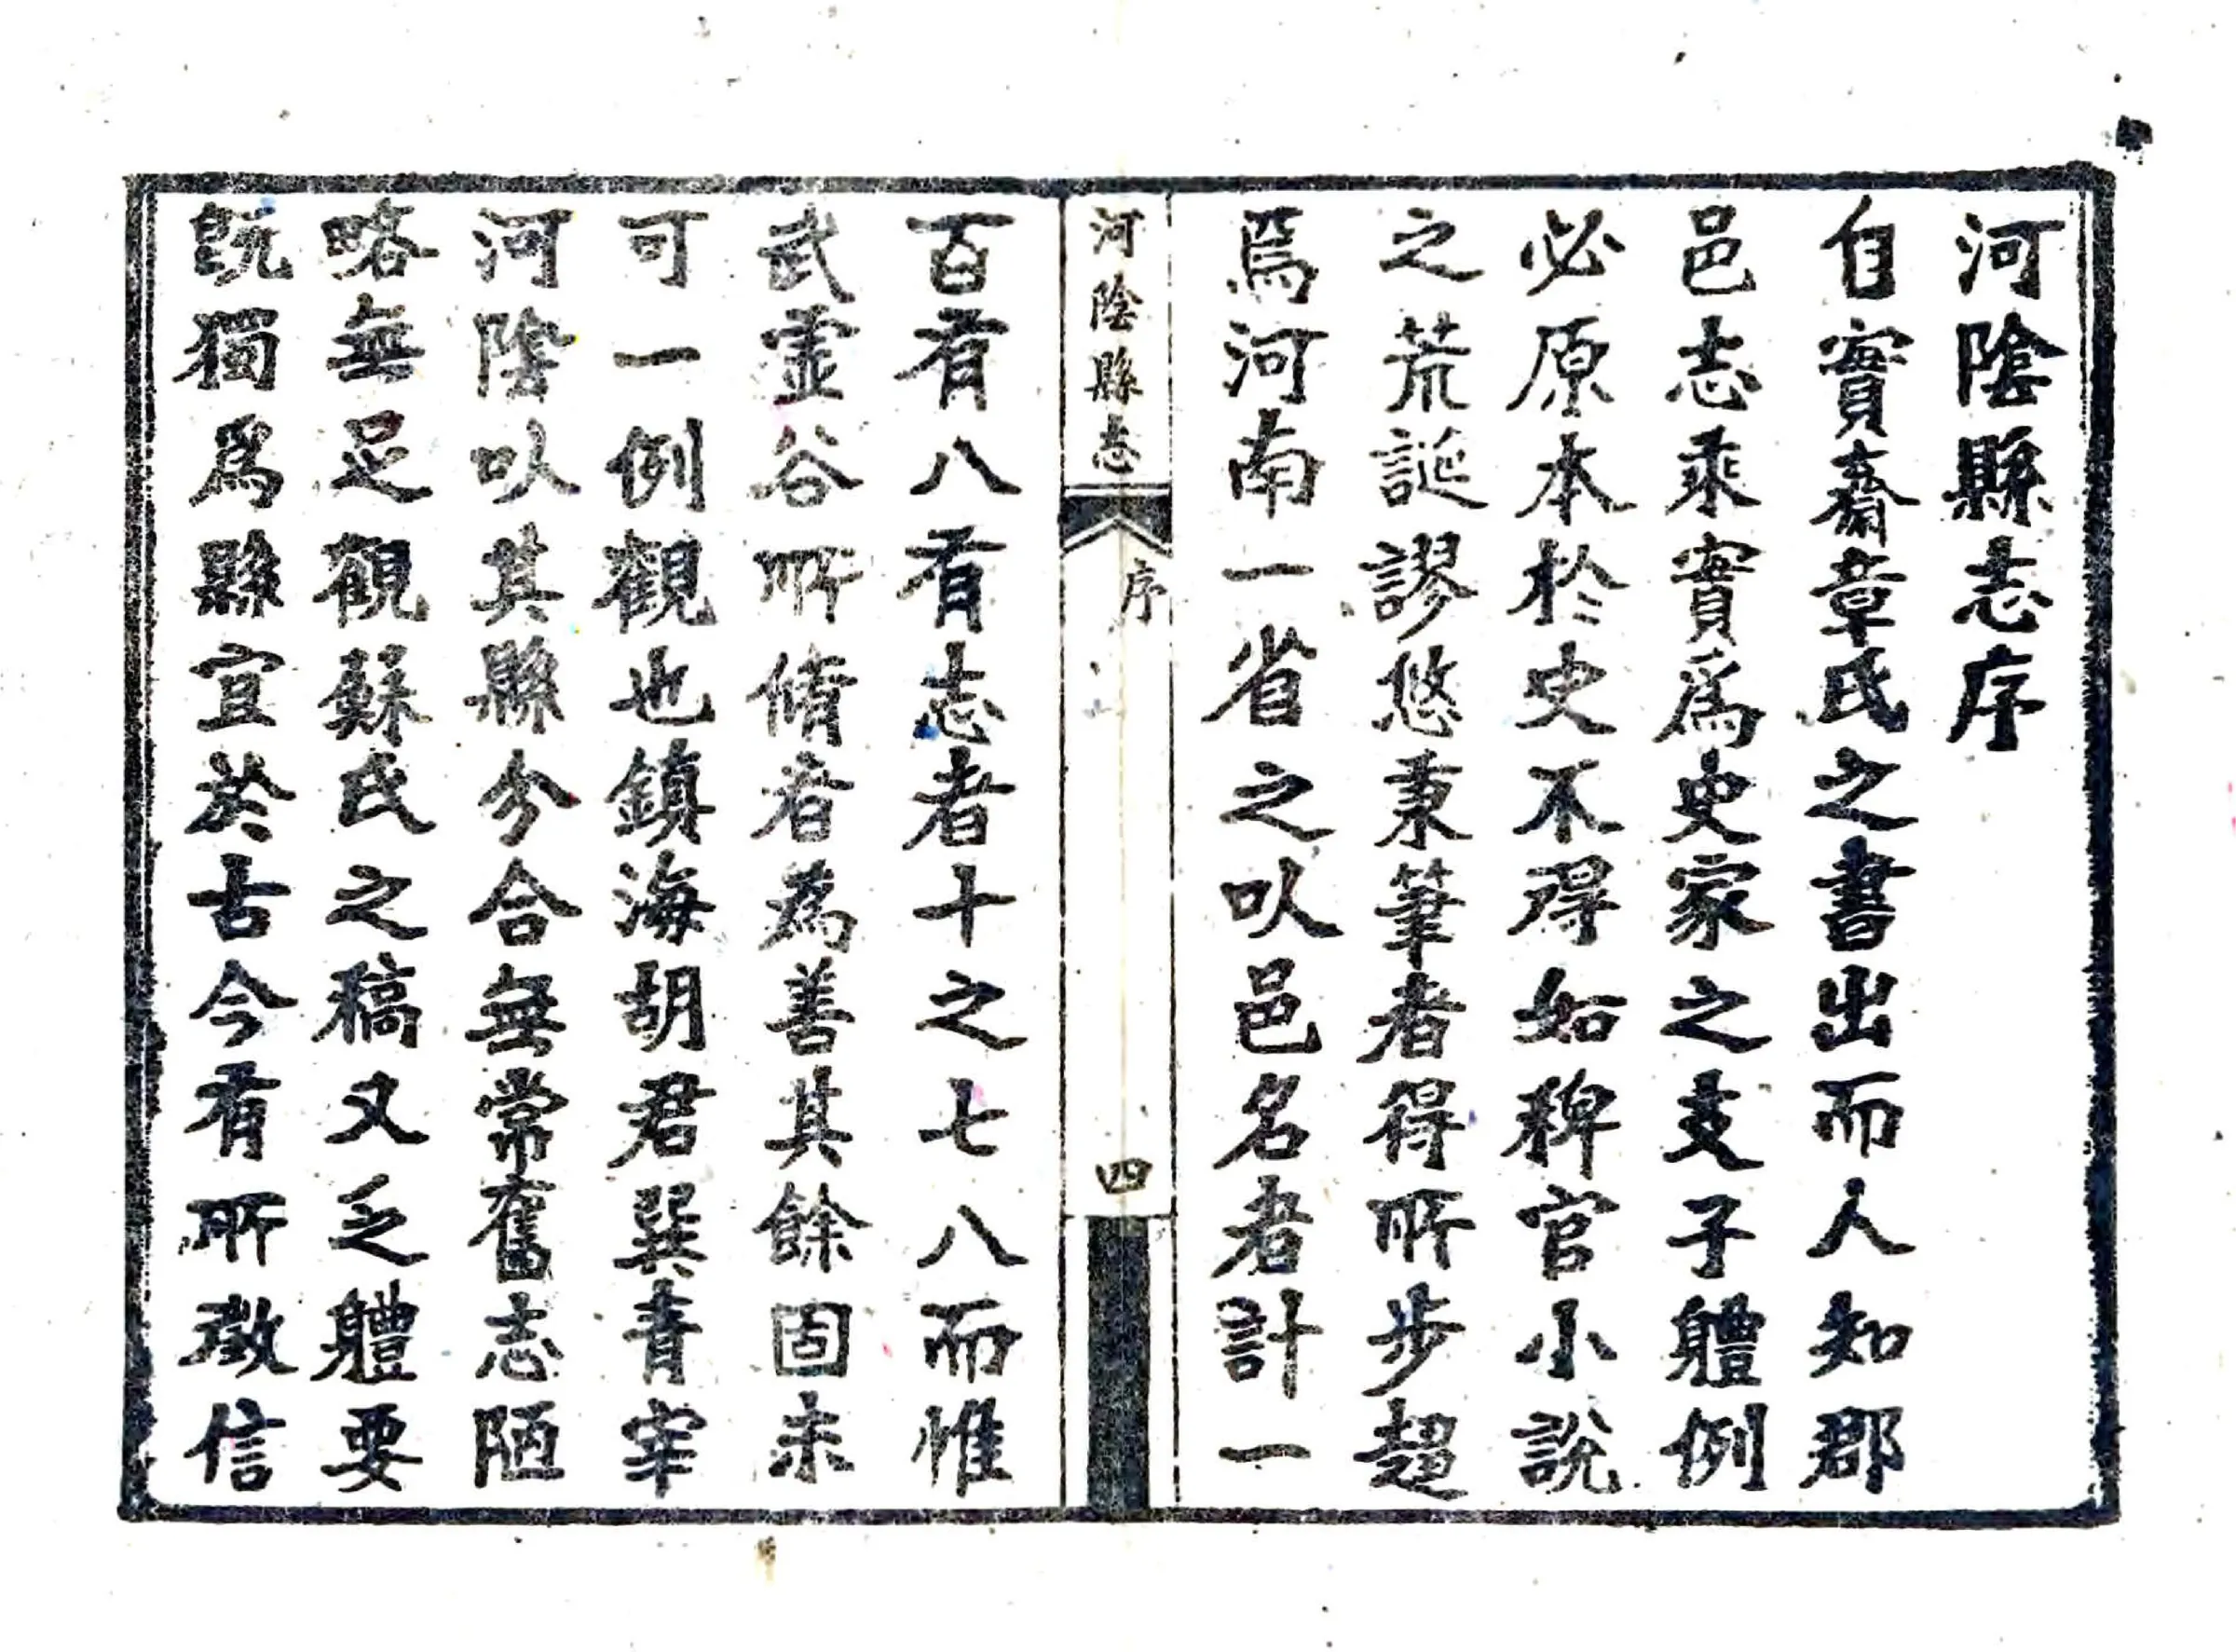 河陰縣志序
自實齋章氏之書出而人知郡
邑志乘實爲史家之支子體例
必原本於史不得如稗官小說
之荒誕謬悠秉筆者得所步趨
焉河南一省之以邑名者計一
河陰縣志
序
四
百有八有志者十之七八而惟
武虛谷所脩者為善其餘固未
可一例觀也鎮海胡君巽青宰
河陰以其縣分合無常舊志陋
略無足觀蘇氏之稿又乏體要
旣獨爲縣宜於古今有所徵信